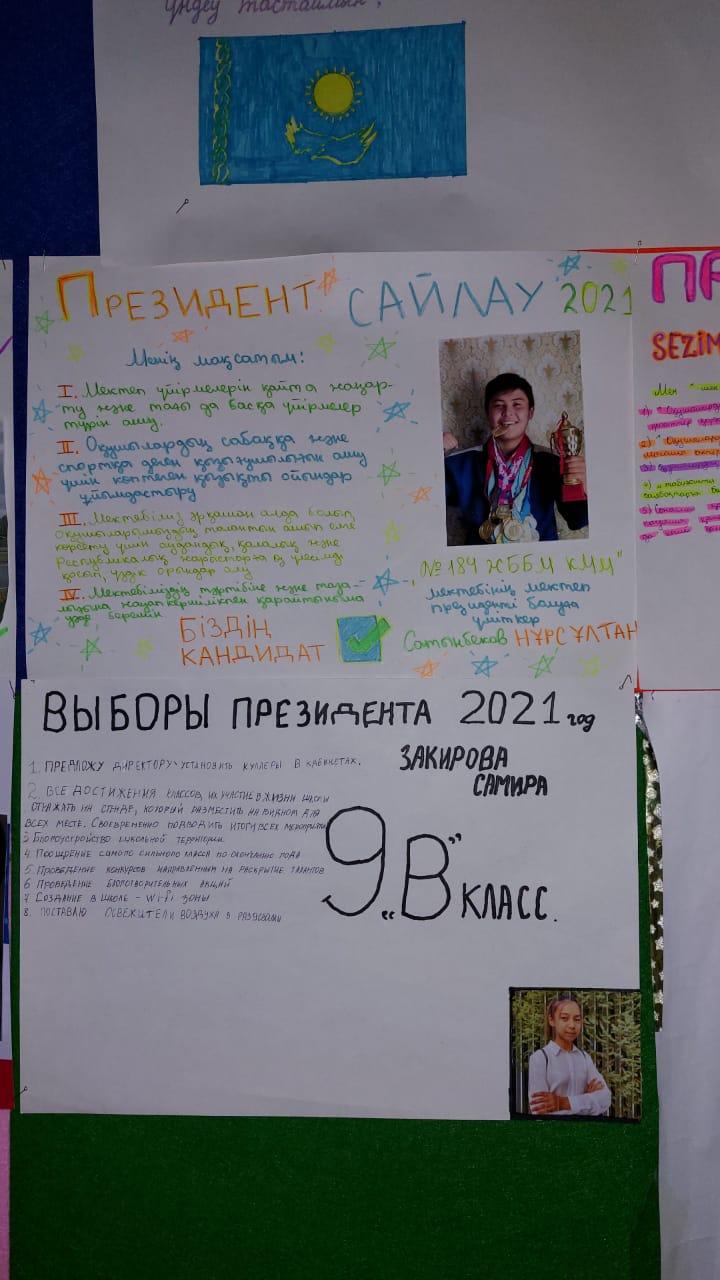 үндеу тастаймын!
ПРЕЗИДЕНТ САЙЛАУ 2021
Менің мақсатым:
I. Мектеп үйірмелерін қайта жаңар-
ту және тағы да басқа үйірмелер
түрін ашу.
II. Оқушылардың сабаққа және
спортқа деген қызығушылығын ашу
үшін көптеген қызықты ойындар
ұйымдастыру
III. Мектебіміз әрқашан алда болып,
Оқушыларымыздың талантын ашып
көрсету үшін аудандық, қалалық және
Республикалық жарыстарға өз үлесімді
қосып, үздік орындар алу
IV. Мектебіміздің тәртібіне және таза-
лығына жауапкершілікпен қарайтыныма
уәде беремін
БІЗДІҢ
КАНДИДАТ
„№184 ЖББМ КММ"
мектебінің мектеп
президенті болуға
үміткер
Сатынбеков НҰРСҰЛТАН
ПР
SEZIM
ВЫБОРЫ ПРЕЗИДЕНТА 2021 год
ЗАКИРОВА
САМИРА
1. ПРЕДЛОЖУ ДИРЕКТОРУ УСТАНОВИТЬ КУЛЛЕРЫ В КАБИНЕТАХ.
2. ВСЕ ДОСТИЖЕНИЯ КЛАССОВ, ИХ УЧАСТИЕ В ЖИЗНИ ШКОЛЫ
ОТРАЖАТЬ НА СТЕНДЕ, КОТОРЫЙ РАЗМЕСТИТЬ НА ВИДНОМ ДЛЯ
ВСЕХ МЕСТЕ. СВОЕВРЕМЕННО ПОДВОДИТЬ ИТОГИ ВСЕХ МЕРОПРИЯТИЙ
3 БЛАГОУСТРОЙСТВО ШКОЛЬНОЙ ТЕРРИТОРИИ.
4. ПООЩРЕНИЕ САМОГО СИЛЬНОГО КЛАССА ПО ОКОНЧАНИЮ ГОДА
5. ПРОВЕДЕНИЕ КОНКУРСОВ НАПРАВЛЕННЫМ НА РАСКРЫТИЕ ТАЛАНТОВ
6 ПРОВЕДЕНИЕ БЛАГОТВОРИТЕЛЬНЫХ АКЦИЙ
7 СОЗДАНИЕ В ШКОЛЕ - Wi-Fi ЗОНЫ
8. ПОСТАВЛЮ ОСВЕЖИТЕЛИ ВОЗДУХА В РАЗДЕВАЛКИ
9 „В" КЛАСС.